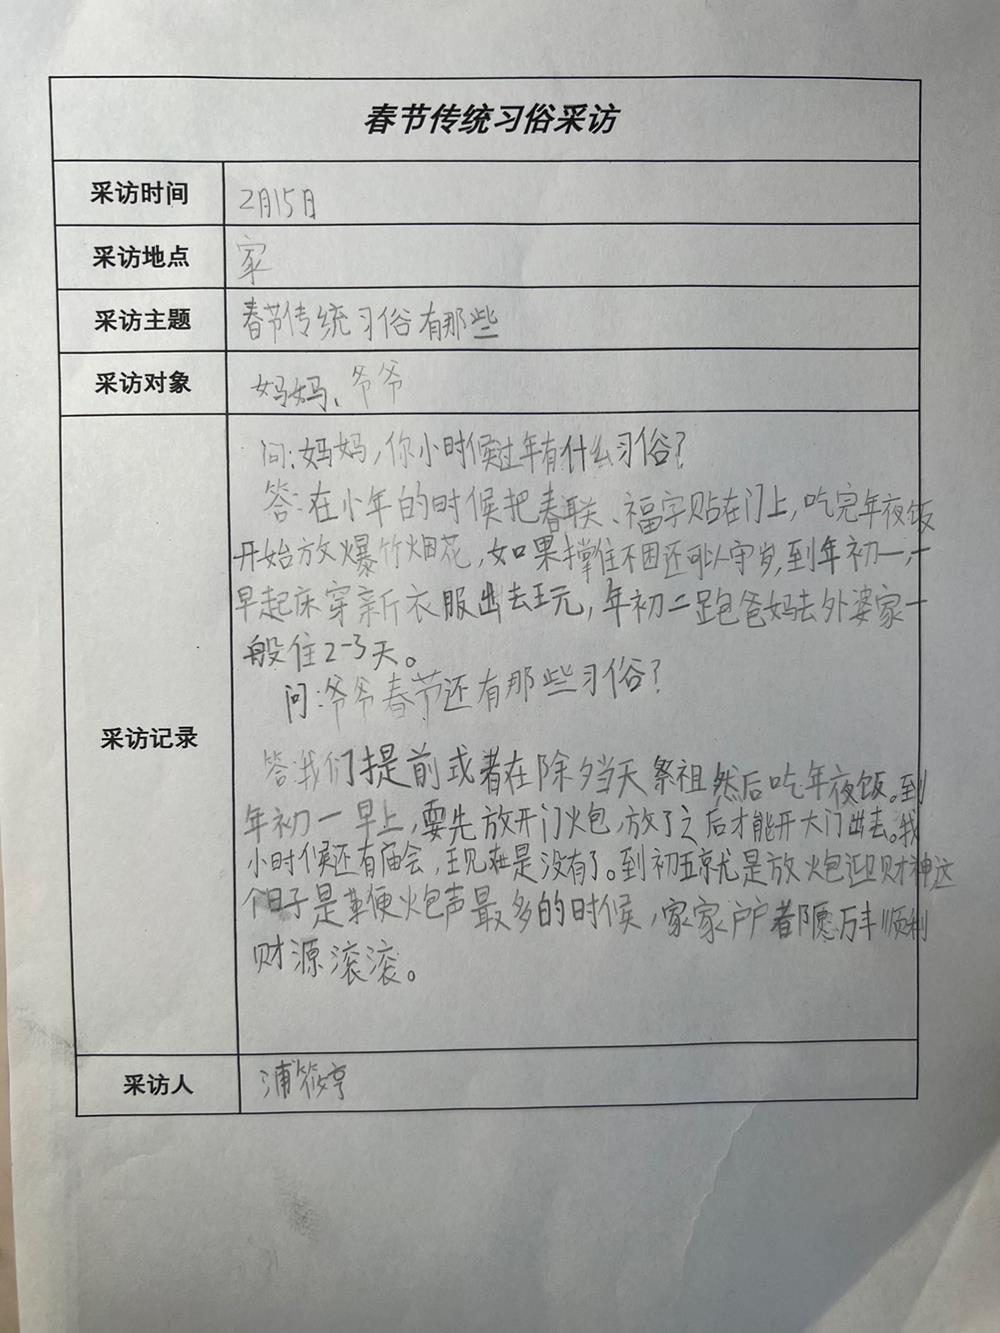 春节传统习俗采访
采访时间 2月15日
采访地点 家
采访主题 春节传统习俗有那些
采访对象 妈妈、爷爷
采访记录
问:妈妈,你小时候过年有什么习俗?
答:在小年的时候把春联、福字贴在门上,吃完年夜饭
开始放爆竹烟花,如果撑住不困还可以守岁,到年初一,一
早起床穿新衣服出去玩,年初二跟爸妈去外婆家一
般住2-3天。
问:爷爷春节还有那些习俗?
答:我们提前或者在除夕当天祭祖然后吃年夜饭。到
年初一早上,要先放开门火包,放了之后才能开大门出去。我
小时候还有庙会,现在是没有了。到初五就是放火包迎财神这
个日子是鞭火包声最多的时候,家家户户都愿万事顺利
财源滚滚。
采访人 浦筱亭